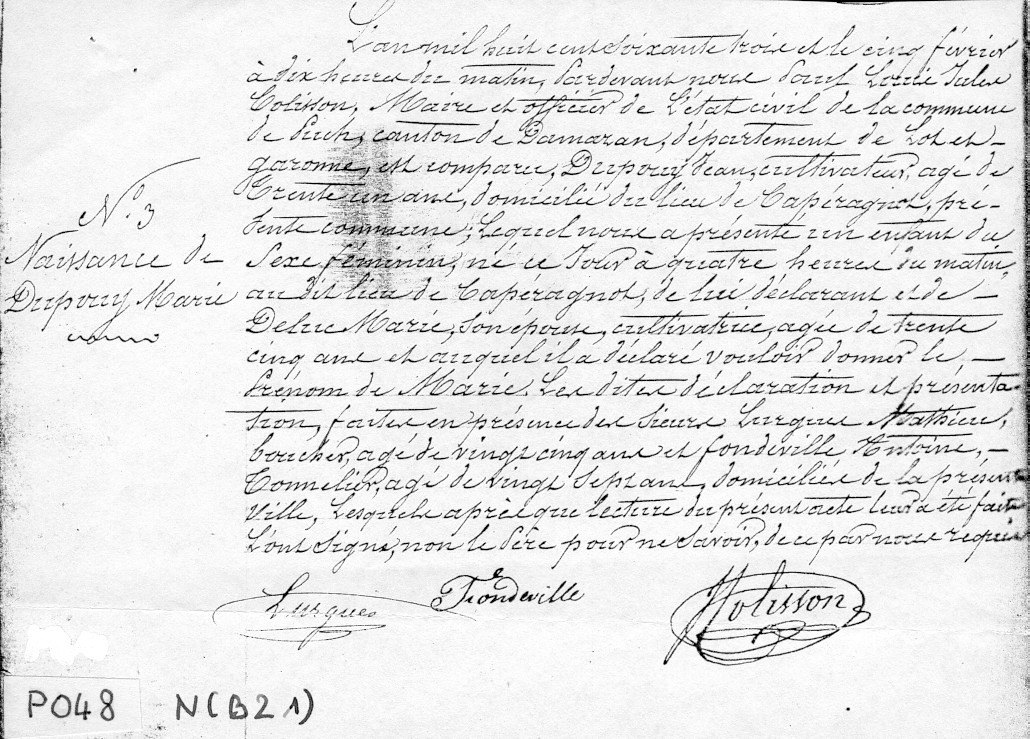 L'an mil huit cent soixante trois et le cinq février
à dix heures du matin, pardevant nous Paul Louis Jules
Colisson, Maire et officier de l'état civil de la commune
de Puch, canton de Damazan, département de Lot et-
garonne, est comparu, Dupouy Jean, cultivateur, agé de
Trente un ans, domicilié du lieu de Capéragnot, pré-
sente commune; Lequel nous a présenté un enfant du
Sexe féminin, né ce Jour à quatre heures du matin,
au dit lieu de Capéragnot, de lui déclarant et de –
Deluc Marie, son épouse, cultivatrice, agée de trente
cinq ans et auquel il a déclaré vouloir donner le –
Prénom de Marie. Les dites déclaration et présenta-
tion, faites en présence des sieurs Lurgues Mathieu,
boucher, agé de vingt cinq ans et fondeville Antoine, –
Tonnelier, agé de vingt Sept ans, domiciliés de la présente
Ville, Lesquels après que lecture du présent acte leur a été faite
L'ont signé, non le Père pour ne Savoir, de ce par nous requis
N.o 3
Naissance de
Dupouy Marie
Lurgues
Fondeville
Colisson
P048 N(B21)